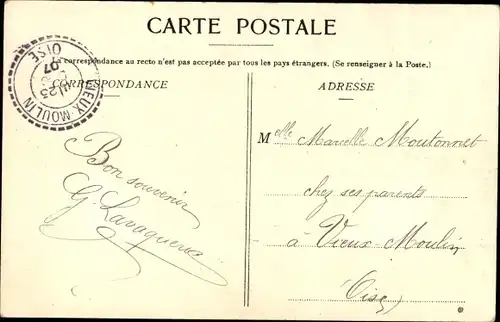 CARTE POSTALE
La correspondance au recto n'est pas acceptée par tous les pays étrangers. (Se renseigner à la Poste.)
CORRESPONDANCE
ADRESSE
VIEUX-MOULIN
23
07
OISE
Bon souvenir
G. Lavaquerie
Melle Marcelle Moutonnet
chez ses parents
à Vieux-Moulin
(Oise)